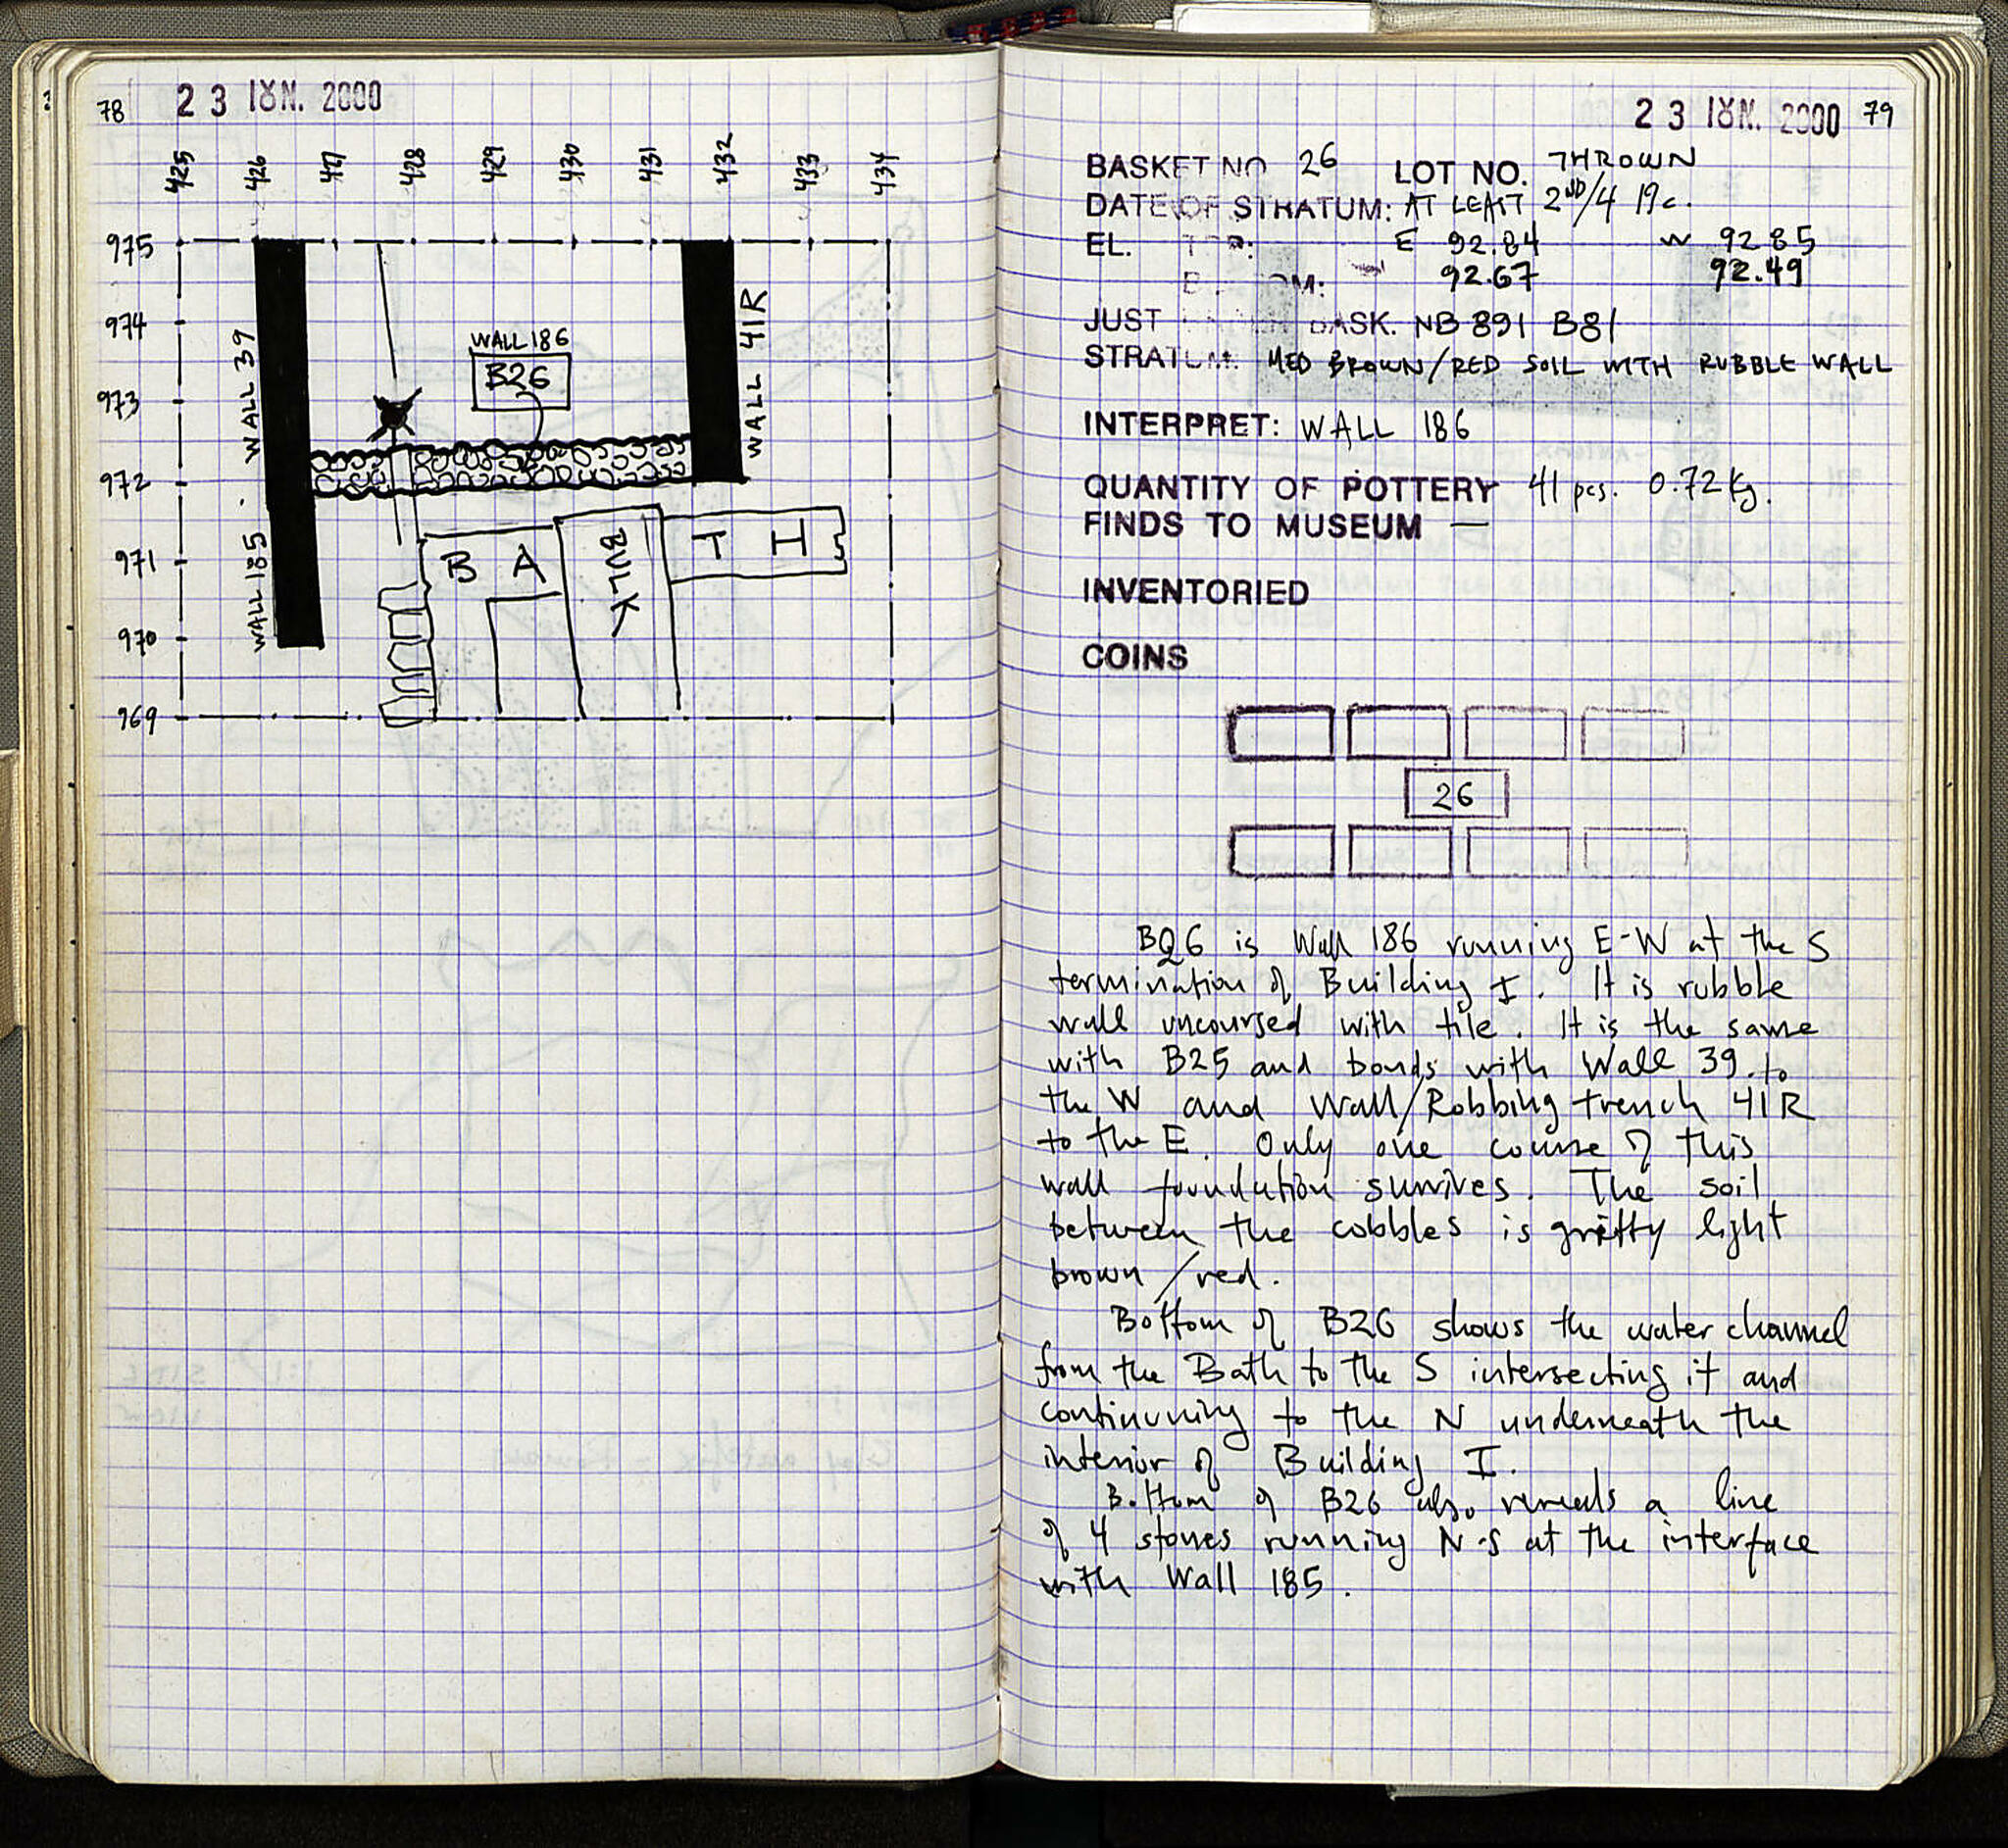 78
23 ΙΟΥΝ. 2000
425 426 427 428 429 430 431 432 433 434
975
974
973
972
971
970
969
WALL 39
WALL 185
WALL 186
B26
WALL 41R
BA
BULK
TH
23 ΙΟΥΝ. 2000 79
BASKET NO 26 LOT NO. THROWN
DATE OF STRATUM: AT LEAST 2ND/4 19c.
EL. TOP: E 92.84 W 92.85
BOTTOM: 92.67 92.49
JUST UNDER BASK. NB 891 B81
STRATUM MED BROWN/RED SOIL WITH RUBBLE WALL
INTERPRET: WALL 186
QUANTITY OF POTTERY 41 pcs. 0.72 Kg.
FINDS TO MUSEUM —
INVENTORIED
COINS
26
B26 is Wall 186 running E-W at the S
termination of Building I. It is rubble
wall uncoursed with tile. It is the same
with B25 and bonds with Wall 39 to
the W and Wall/Robbing trench 41R
to the E. Only one course of this
wall foundation survives. The soil
between the cobbles is gritty light
brown/red.
Bottom of B26 shows the water channel
from the Bath to the S intersecting it and
continuing to the N underneath the
interior of Building I.
Bottom of B26 also reveals a line
of 4 stones running N-S at the interface
with Wall 185.